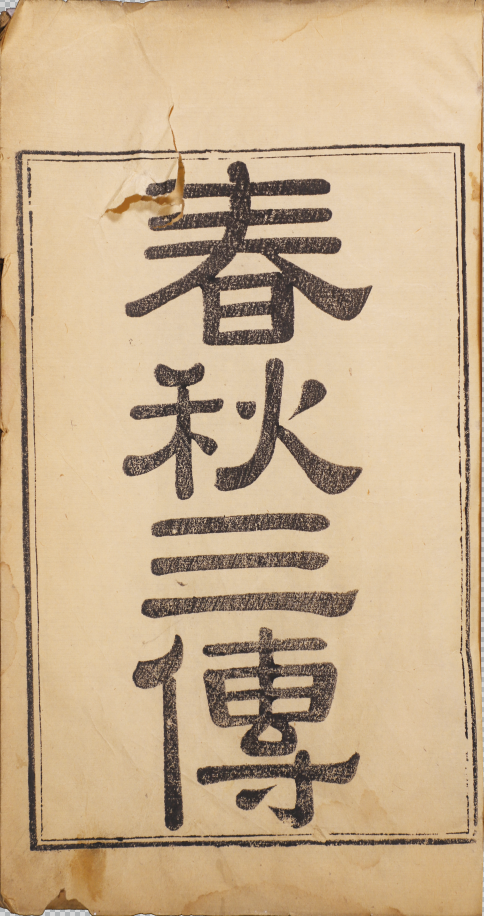 春秋三傳